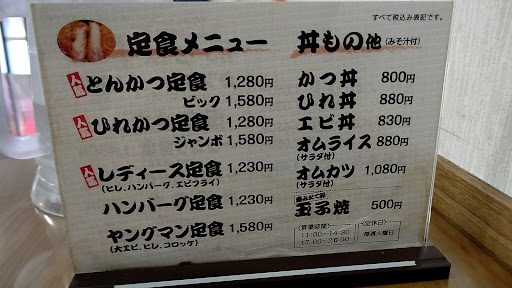 すべて税込み表記です。
定食メニュー
人気 とんかつ定食 1,280円
ビック 1,580円
人気 ひれかつ定食 1,280円
ジャンボ 1,580円
人気 レディース定食 1,230円
(ヒレ、ハンバーグ、エビフライ)
ハンバーグ定食 1,230円
ヤングマン定食 1,580円
(大エビ、ヒレ、コロッケ)
丼もの他 (みそ汁付)
かつ丼 800円
ひれ丼 880円
エビ丼 830円
オムライス 880円
(サラダ付)
オムカツ 1,080円
(サラダ付)
玉子焼 500円
営業時間
11:00~14:30
17:00~20:00
定休日
毎週火曜日